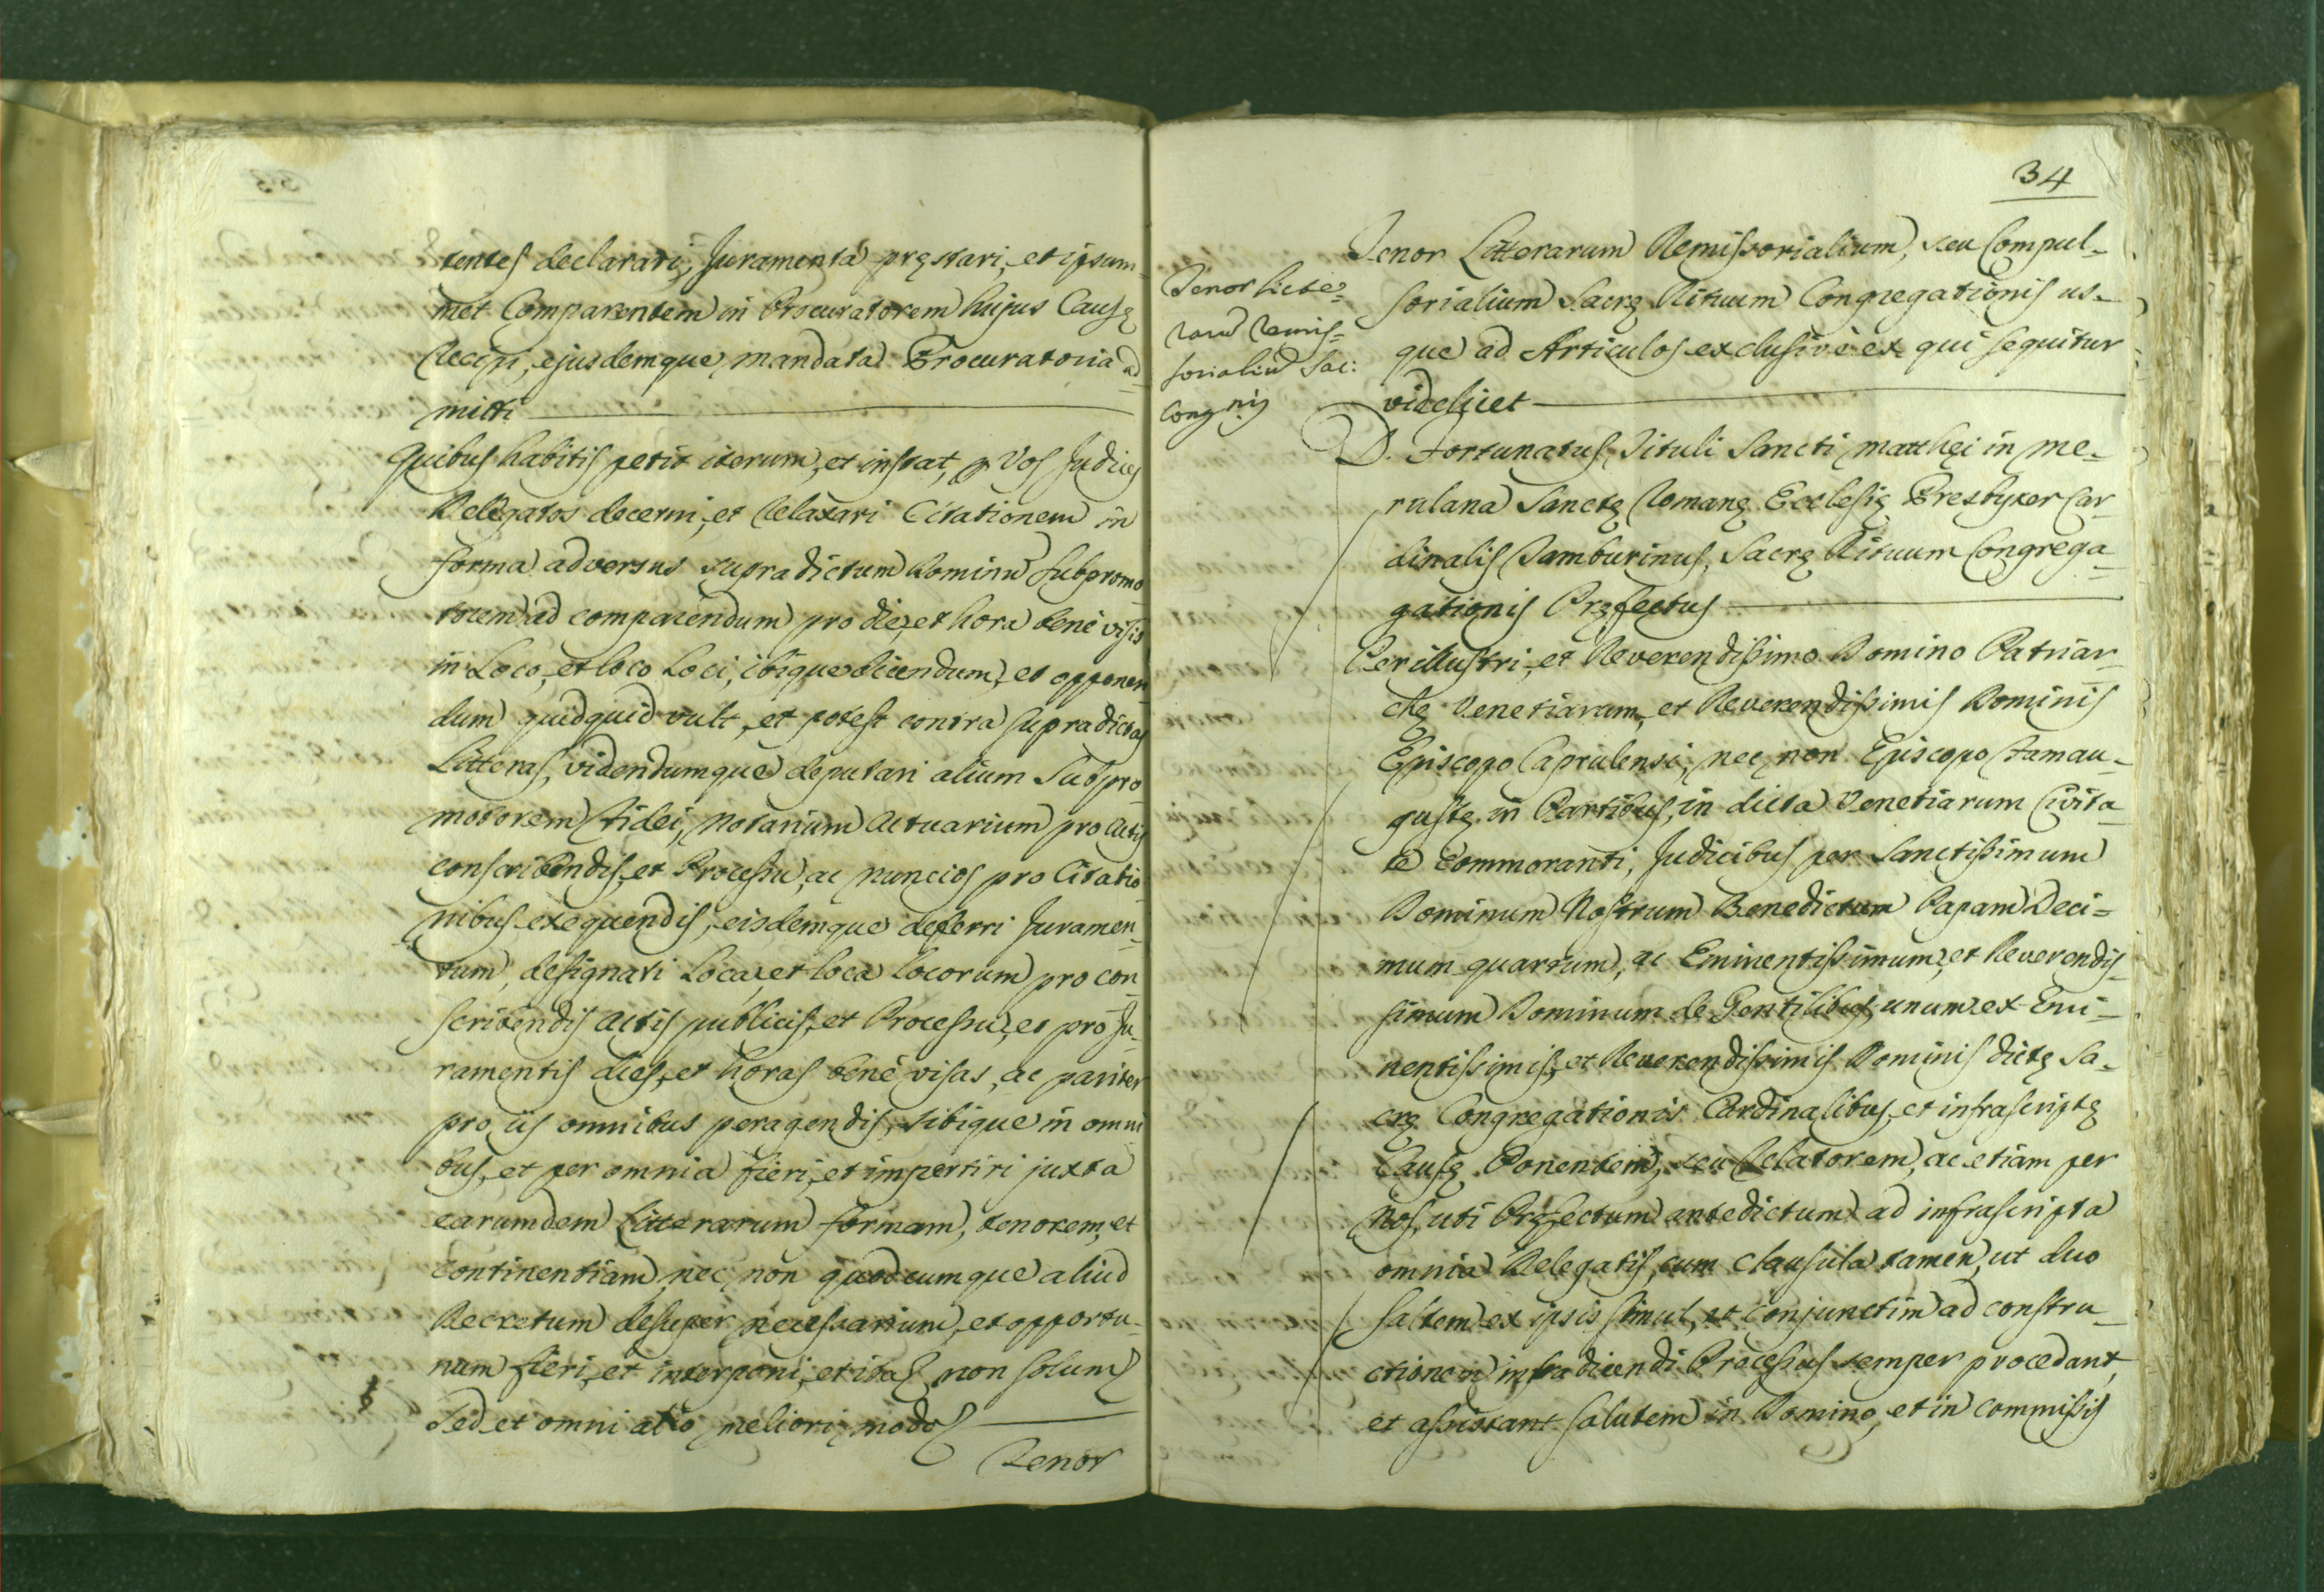 tentes declarari, Juramenta pręstari, et ipsum-
met Comparentem in Procuratorem hujus Causę
Recipi, ejusdemque mandata Procuratoria ad-
mitti
Quibus habitis petit iterum, et instat, p Vos Judices
Delegatos decerni, et Relaxari Citationem in
forma adversus supradictum Dominū Subpromo-
torem ad comparendum pro die, et hora benè visis
in Loco, et loco Loci, ibique dicendum, et opponen-
dum quidquid vult, et potest contra supradictas
Litteras, videndumque deputari alium Subpro-
motorem fidei, Notarium Actuarium pro Actis
conscribendis, et Processu, ac Nuncios pro Citatio-
nibus exequendis, eisdemque deferri Juramen-
tum, designari Loca, et loca locorum pro con-
scribendis Actis publicis, et Processu, et pro Ju-
ramentis dies, et horas benè visas, ac pariter
pro iis omnibus peragendis, sibique in omni-
bus, et per omnia fieri, et impertiri juxta
earumdem Litterarum formam, tenorem, et
continentiam, nec non quodcumque aliud
Decretum desuper necessarium, et opportu-
num fieri, et interponi, et ita non solum
Sed et omni alio meliori modo
Tenor
34
Tenor Litte-
rarū Remis-
sorialiū Sac:
Congnis
Tenor Litterarum Remissorialium, seu Compul-
sorialium Sacrę Rituum Congregationis us-
que ad Articulos exclusivè ex qui sequitur
videlicet
D. Fortunatus Tituli Sancti Matthęi in Me-
rulana Sanctę Romanę Ecclesię Presbyter Car-
dinalis Tamburinus, Sacrę Rituum Congrega-
gationis Pręfectus
Perillustri, et Reverendissimo Domino Patriar-
chę Venetiarum, et Reverendissimis Dominis
Episcopo Caprulensi, nec non Episcopo Famau-
gustę in Partibus, in dicta Venetiarum Civita-
te Commoranti, Judicibus per Sanctissimum
Dominum Nostrum Benedictum Papam Deci-
mum quartum, ac Eminentissimum, et Reverendis-
simum Dominum de Gentilibus, unum ex Emi-
nentissimis, et Reverendissimis Dominis dictę Sa-
crę Congregationis Cardinalibus, et infrascriptę
Causę Ponentem, seu Relatorem, ac etiam per
Nos, uti Pręfectum antedictum ad infrascripta
omnia Delegatis, cum clausula tamen, ut duo
saltem ex ipsis simul, et conjunctim ad constru-
ctionem infradicendi Processus semper procedant,
et assistant salutem in Domino, et in commissis